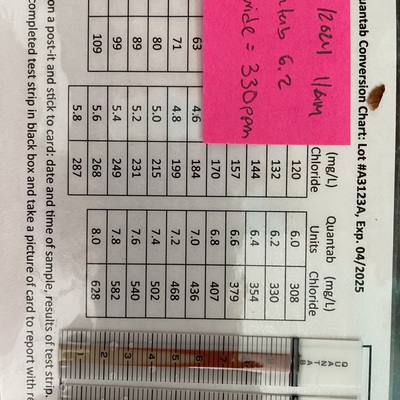 Quantab Conversion Chart: Lot #A3123A, Exp. 04/2025
/2024 11am
6.2
ride = 330ppm
(mg/L) Quantab (mg/L)
Chloride Units Chloride
120 6.0 308
132 6.2 330
144 6.4 354
157 6.6 379
170 6.8 407
63 4.6 184 7.0 436
71 4.8 199 7.2 468
80 5.0 215 7.4 502
89 5.2 231 7.6 540
99 5.4 249 7.8 582
109 5.6 268 8.0 628
5.8 287
on a post-it and stick to card: date and time of sample, results of test strip.
completed test strip in black box and take a picture of card to report with re
QUANTAB
8
7
6
5
4
3
2
1